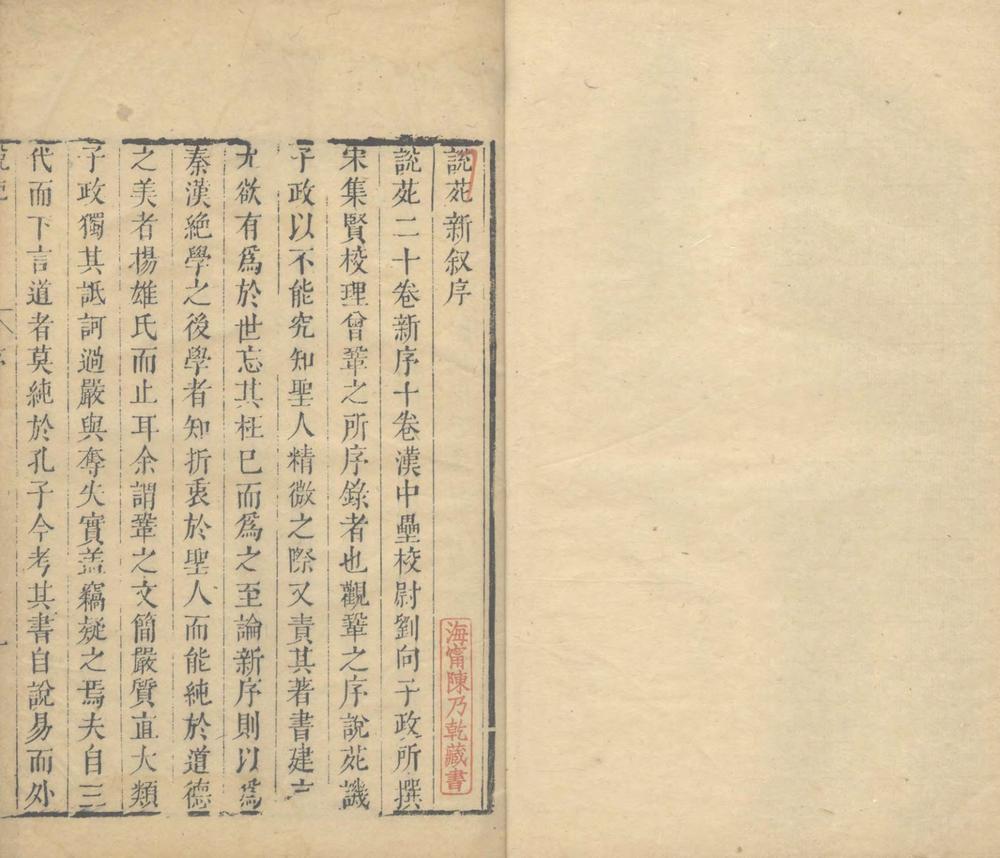 說苑新叙序
海甯陳乃乾藏書
說苑二十卷新序十卷漢中壘校尉劉向子政所撰
宋集賢校理曾鞏之所序錄者也觀鞏之序說苑譏
子政以不能究知聖人精微之際又責其著書建言
尤欲有爲於世忘其枉巳而爲之至論新序則以爲
秦漢絶學之後學者知折衷於聖人而能純於道德
之美者楊雄氏而止耳余謂鞏之文簡嚴質直大類
子政獨其詆訶過嚴與奪失實葢竊疑之焉夫自三
代而下言道者莫純於孔子今考其書自說易而外